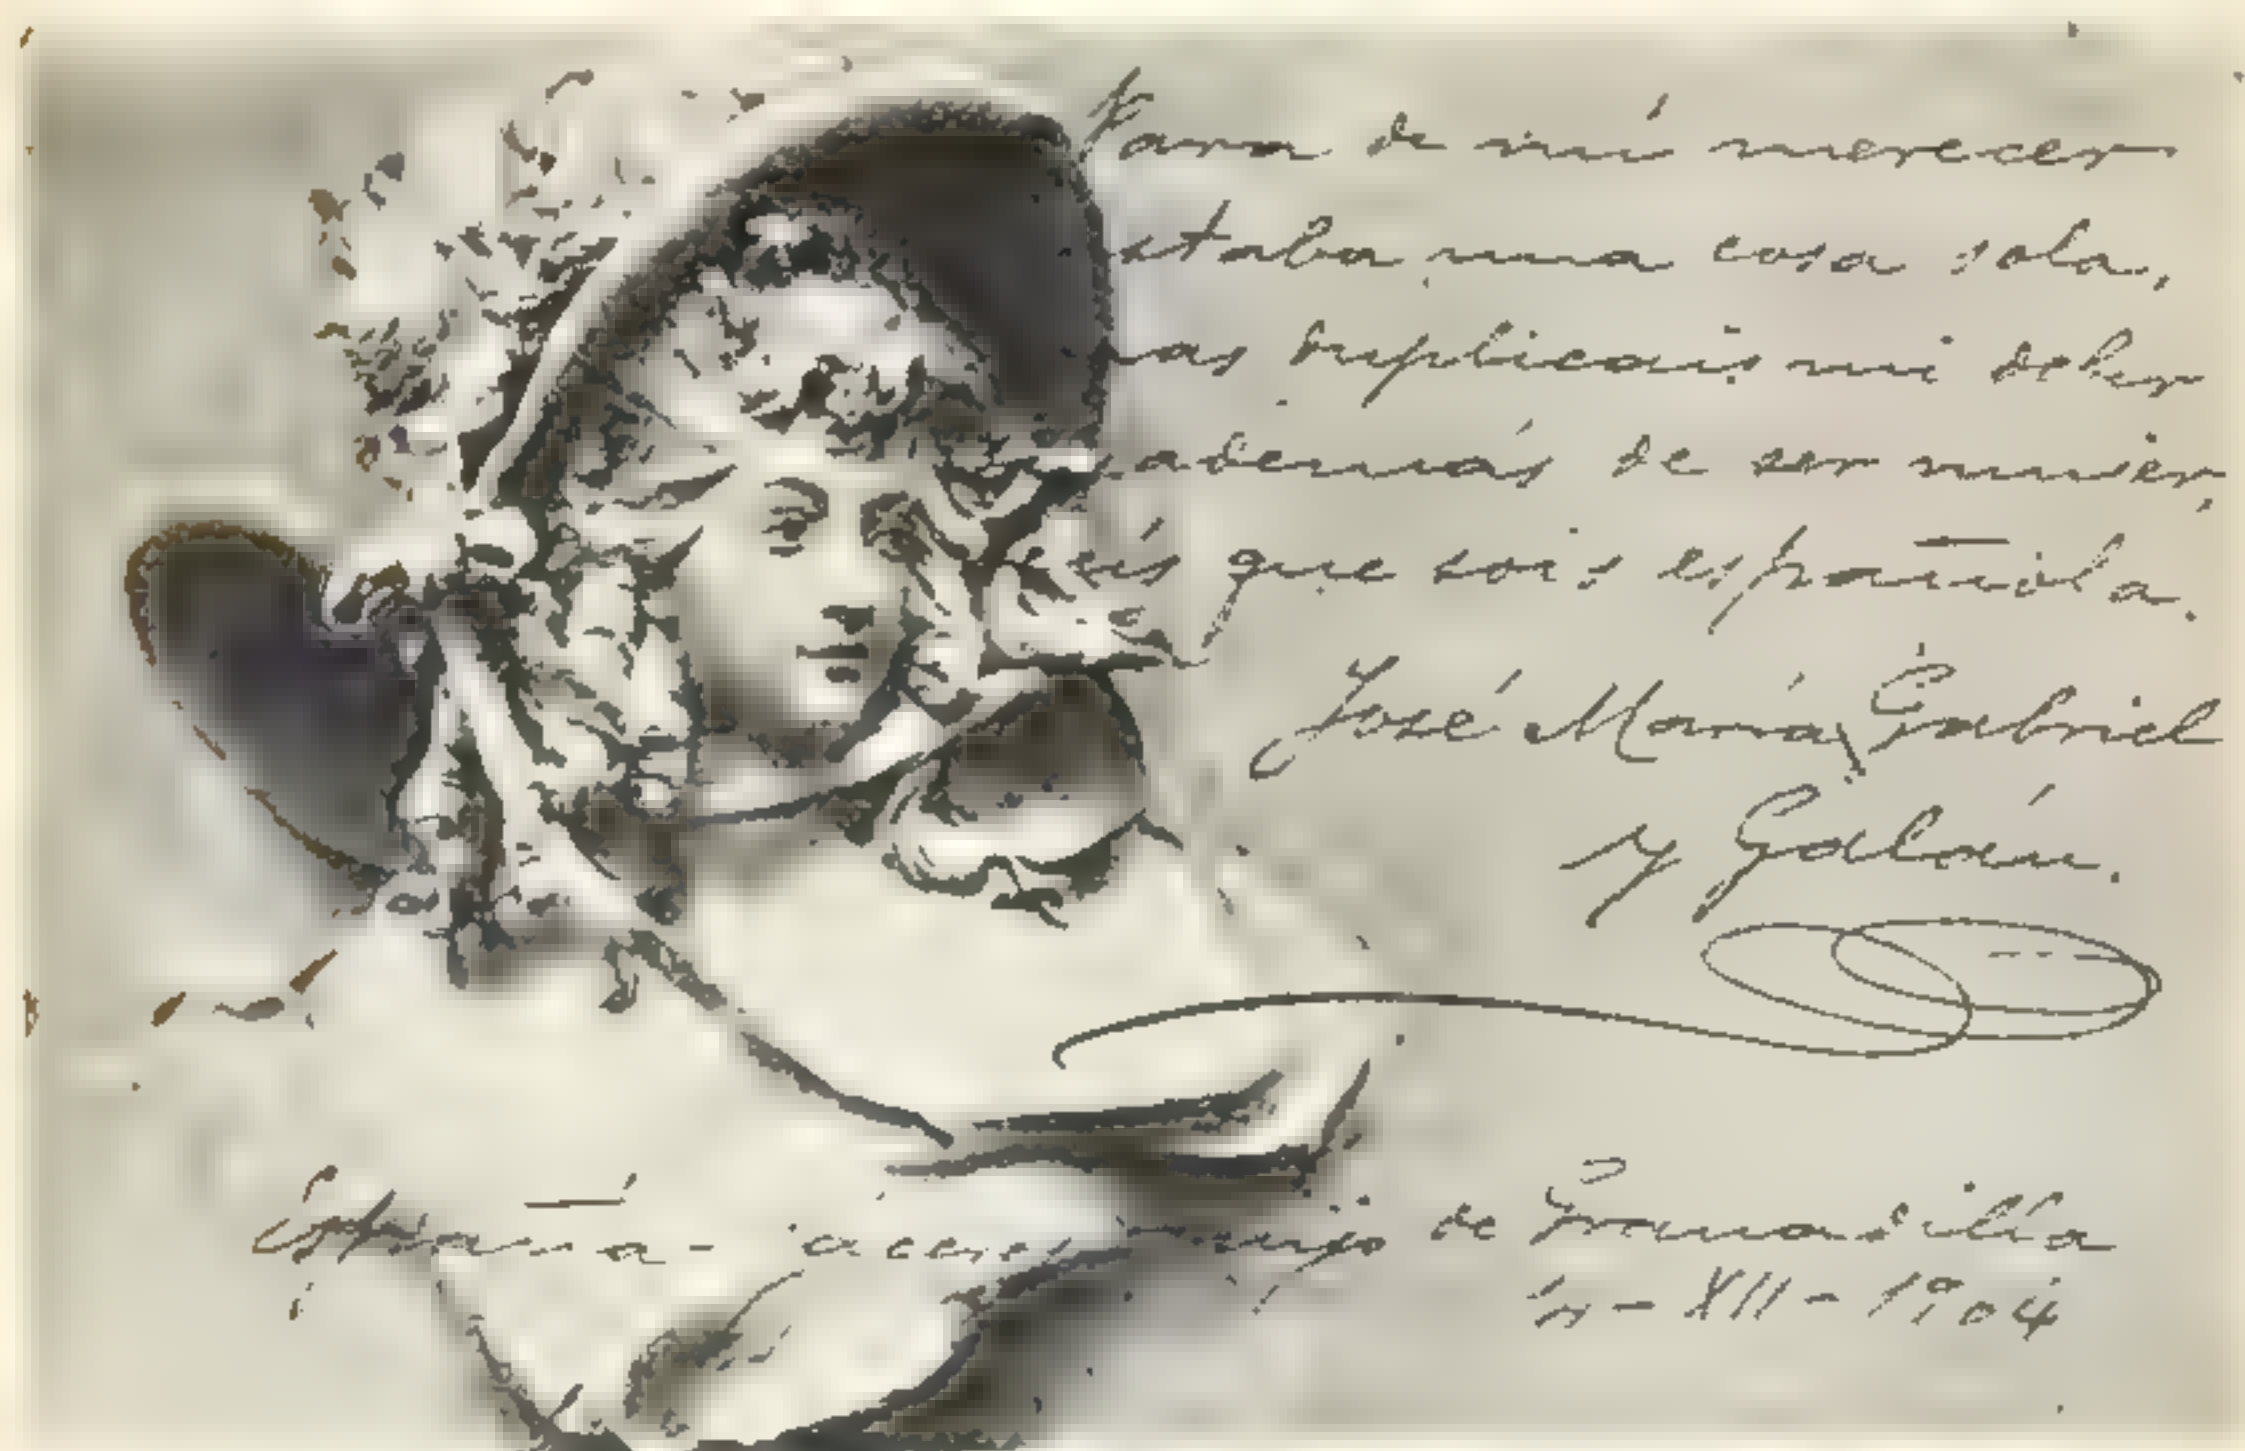 Para de mí merecer
staba una cosa sola,
mas duplicais mi deber
además de ser mujer,
eís que sois española.
José María Gabriel
y Galán.
España - Cáceres de Granadilla
XII - 1904